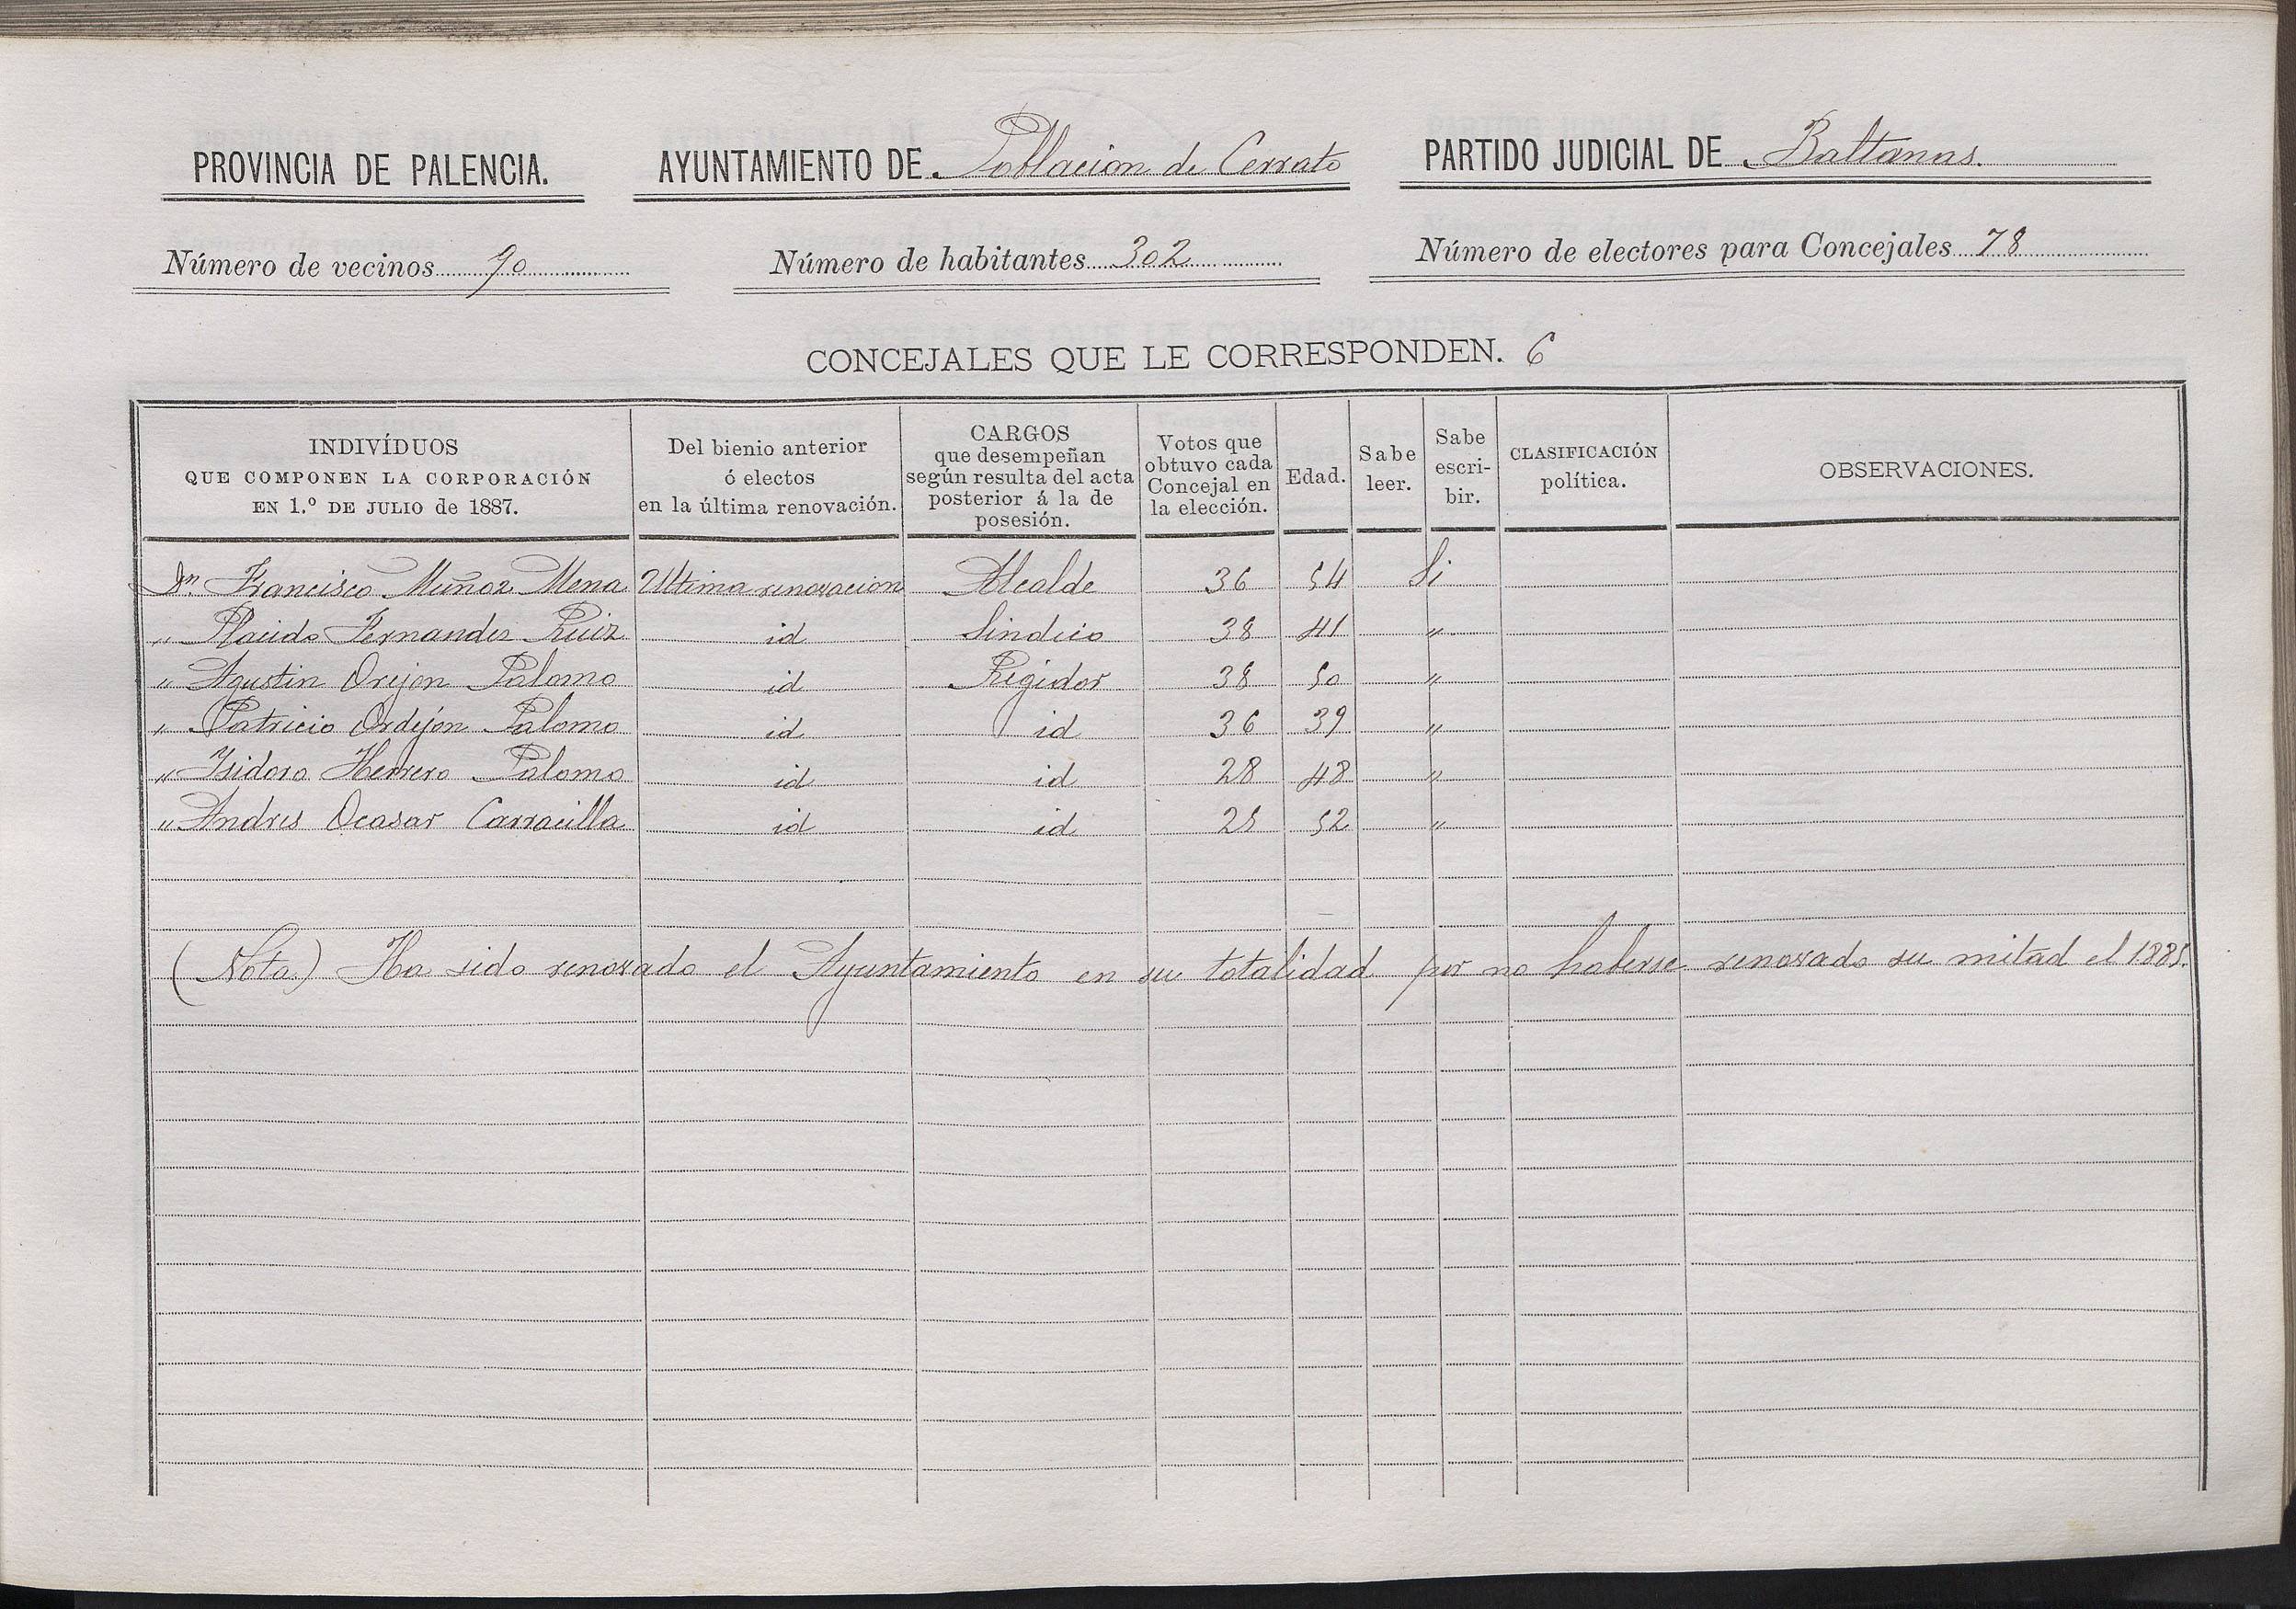 PROVINCIA DE PALENCIA. AYUNTAMIENTO DE Poblacion de Cerrato PARTIDO JUDICIAL DE Baltanas.
Número de vecinos 90 Número de habitantes 302 Número de electores para Concejales 78
CONCEJALES QUE LE CORRESPONDEN. 6
INDIVÍDUOS
QUE COMPONEN LA CORPORACIÓN
EN 1.º DE JULIO de 1887.
Del bienio anterior
ó electos
en la última renovación.
CARGOS
que desempeñan
según resulta del acta
posterior á la de
posesión.
Votos que
obtuvo cada
Concejal en
la elección.
Edad.
Sabe
leer.
Sabe
escri-
bir.
CLASIFICACIÓN
política.
OBSERVACIONES.
Dn. Francisco Muñoz Mena Ultima renovacion Alcalde 36 54 Si
" Placido Fernandes Ruiz id Sindico 38 41 "
" Agustin Orejon Palomo id Regidor 38 50 "
" Patricio Ordejon Palomo id id 36 39 "
" Isidoro Herrero Palomo id id 28 48 "
" Andres Ocasar Carracilla id id 25 52 "
(Nota) Ha sido renovado el Ayuntamiento en su totalidad por no haberse renovado su mitad el 1885.